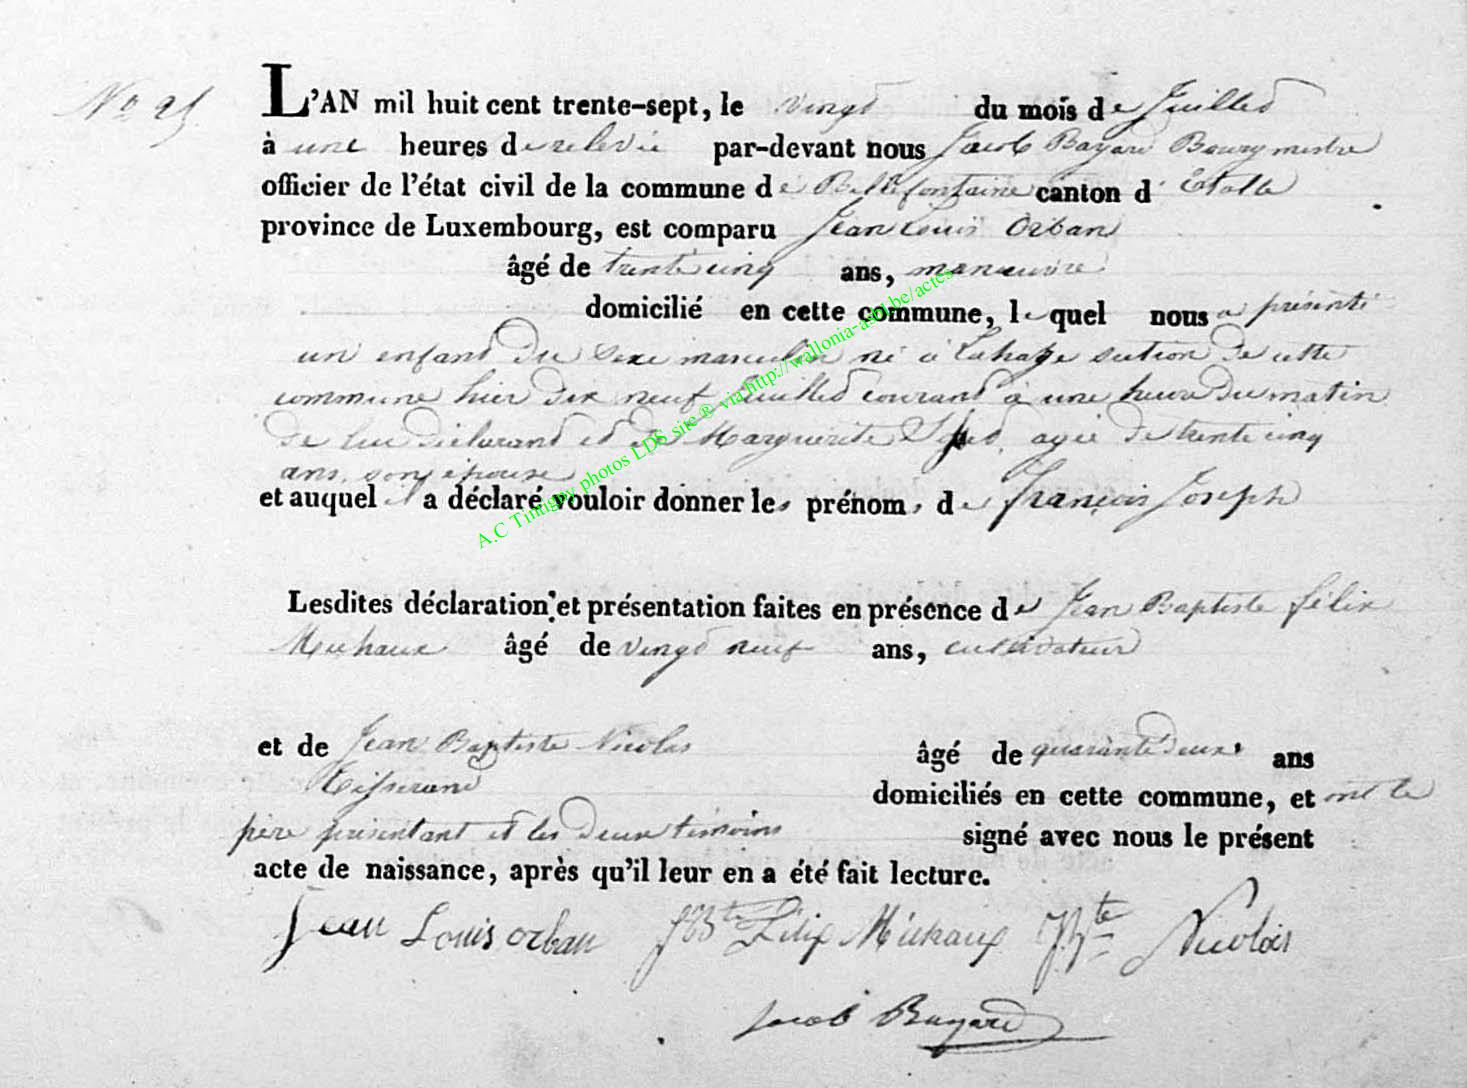 No 25
L'AN mil huit cent trente-sept, le vingt du mois de Juillet
à une heures de relevée par-devant nous Jacob Bayard Bourgmestre
officier de l'état civil de la commune de Bellefontaine canton d'Etalle
province de Luxembourg, est comparu Jean Louis Orban
âgé de trente cinq ans, manœuvre
domicilié en cette commune, le quel nous a présenté
un enfant du sexe masculin né à Lahage section de cette
commune hier dix neuf Juillet courant à une heure du matin
de lui déclarant et de Marguerite agée de trente cinq
ans, son épouse
et auquel il a déclaré vouloir donner les prénoms de François Joseph
Lesdites déclaration et présentation faites en présence de Jean Baptiste félix
Michaux âgé de vingt neuf ans, cultivateur
et de Jean Baptiste Nicolas âgé de quarante deux ans
Tisserand domiciliés en cette commune, et ont le
père présentant et les deux témoins signé avec nous le présent
acte de naissance, après qu'il leur en a été fait lecture.
Jean Louis orban JBte Félix Michaux JBte Nicolas
Jacob Bayard
A.C Tintigny photos LDS site ® via http://wallonia-asbl.be/actes